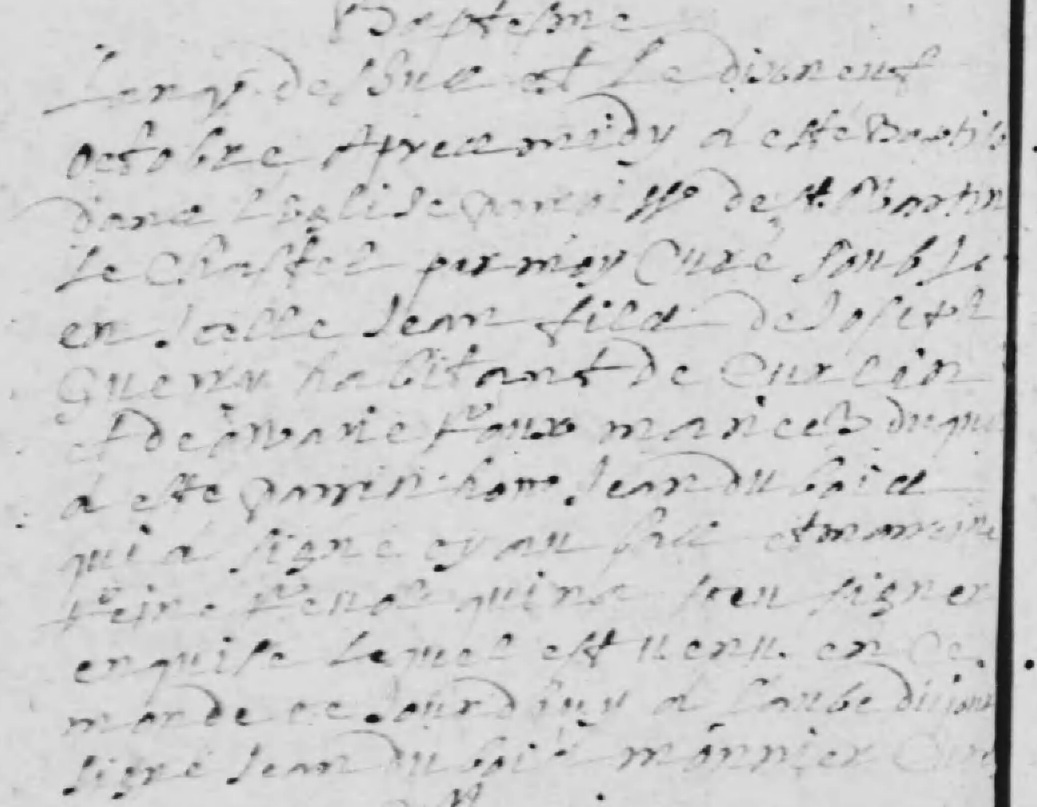 Baptesme
L'an q. dessus et le dixneuf
octobre apres midy a esté Baptis
dans l'Eglise parroisse. de St. Martin
le Chastel par moy Curé soubs.
en icelle Jean fils de Joseph
Guerry habitant de Curcin
et de marie mariés duquel
a esté parrin hon. Jean du bois
qui a signé et marrine
qui n'a sceu signer
enquise lequel est venu en ce
monde ce jourdhuy a l'aube du jour
signé Jean du bois monnier Curé